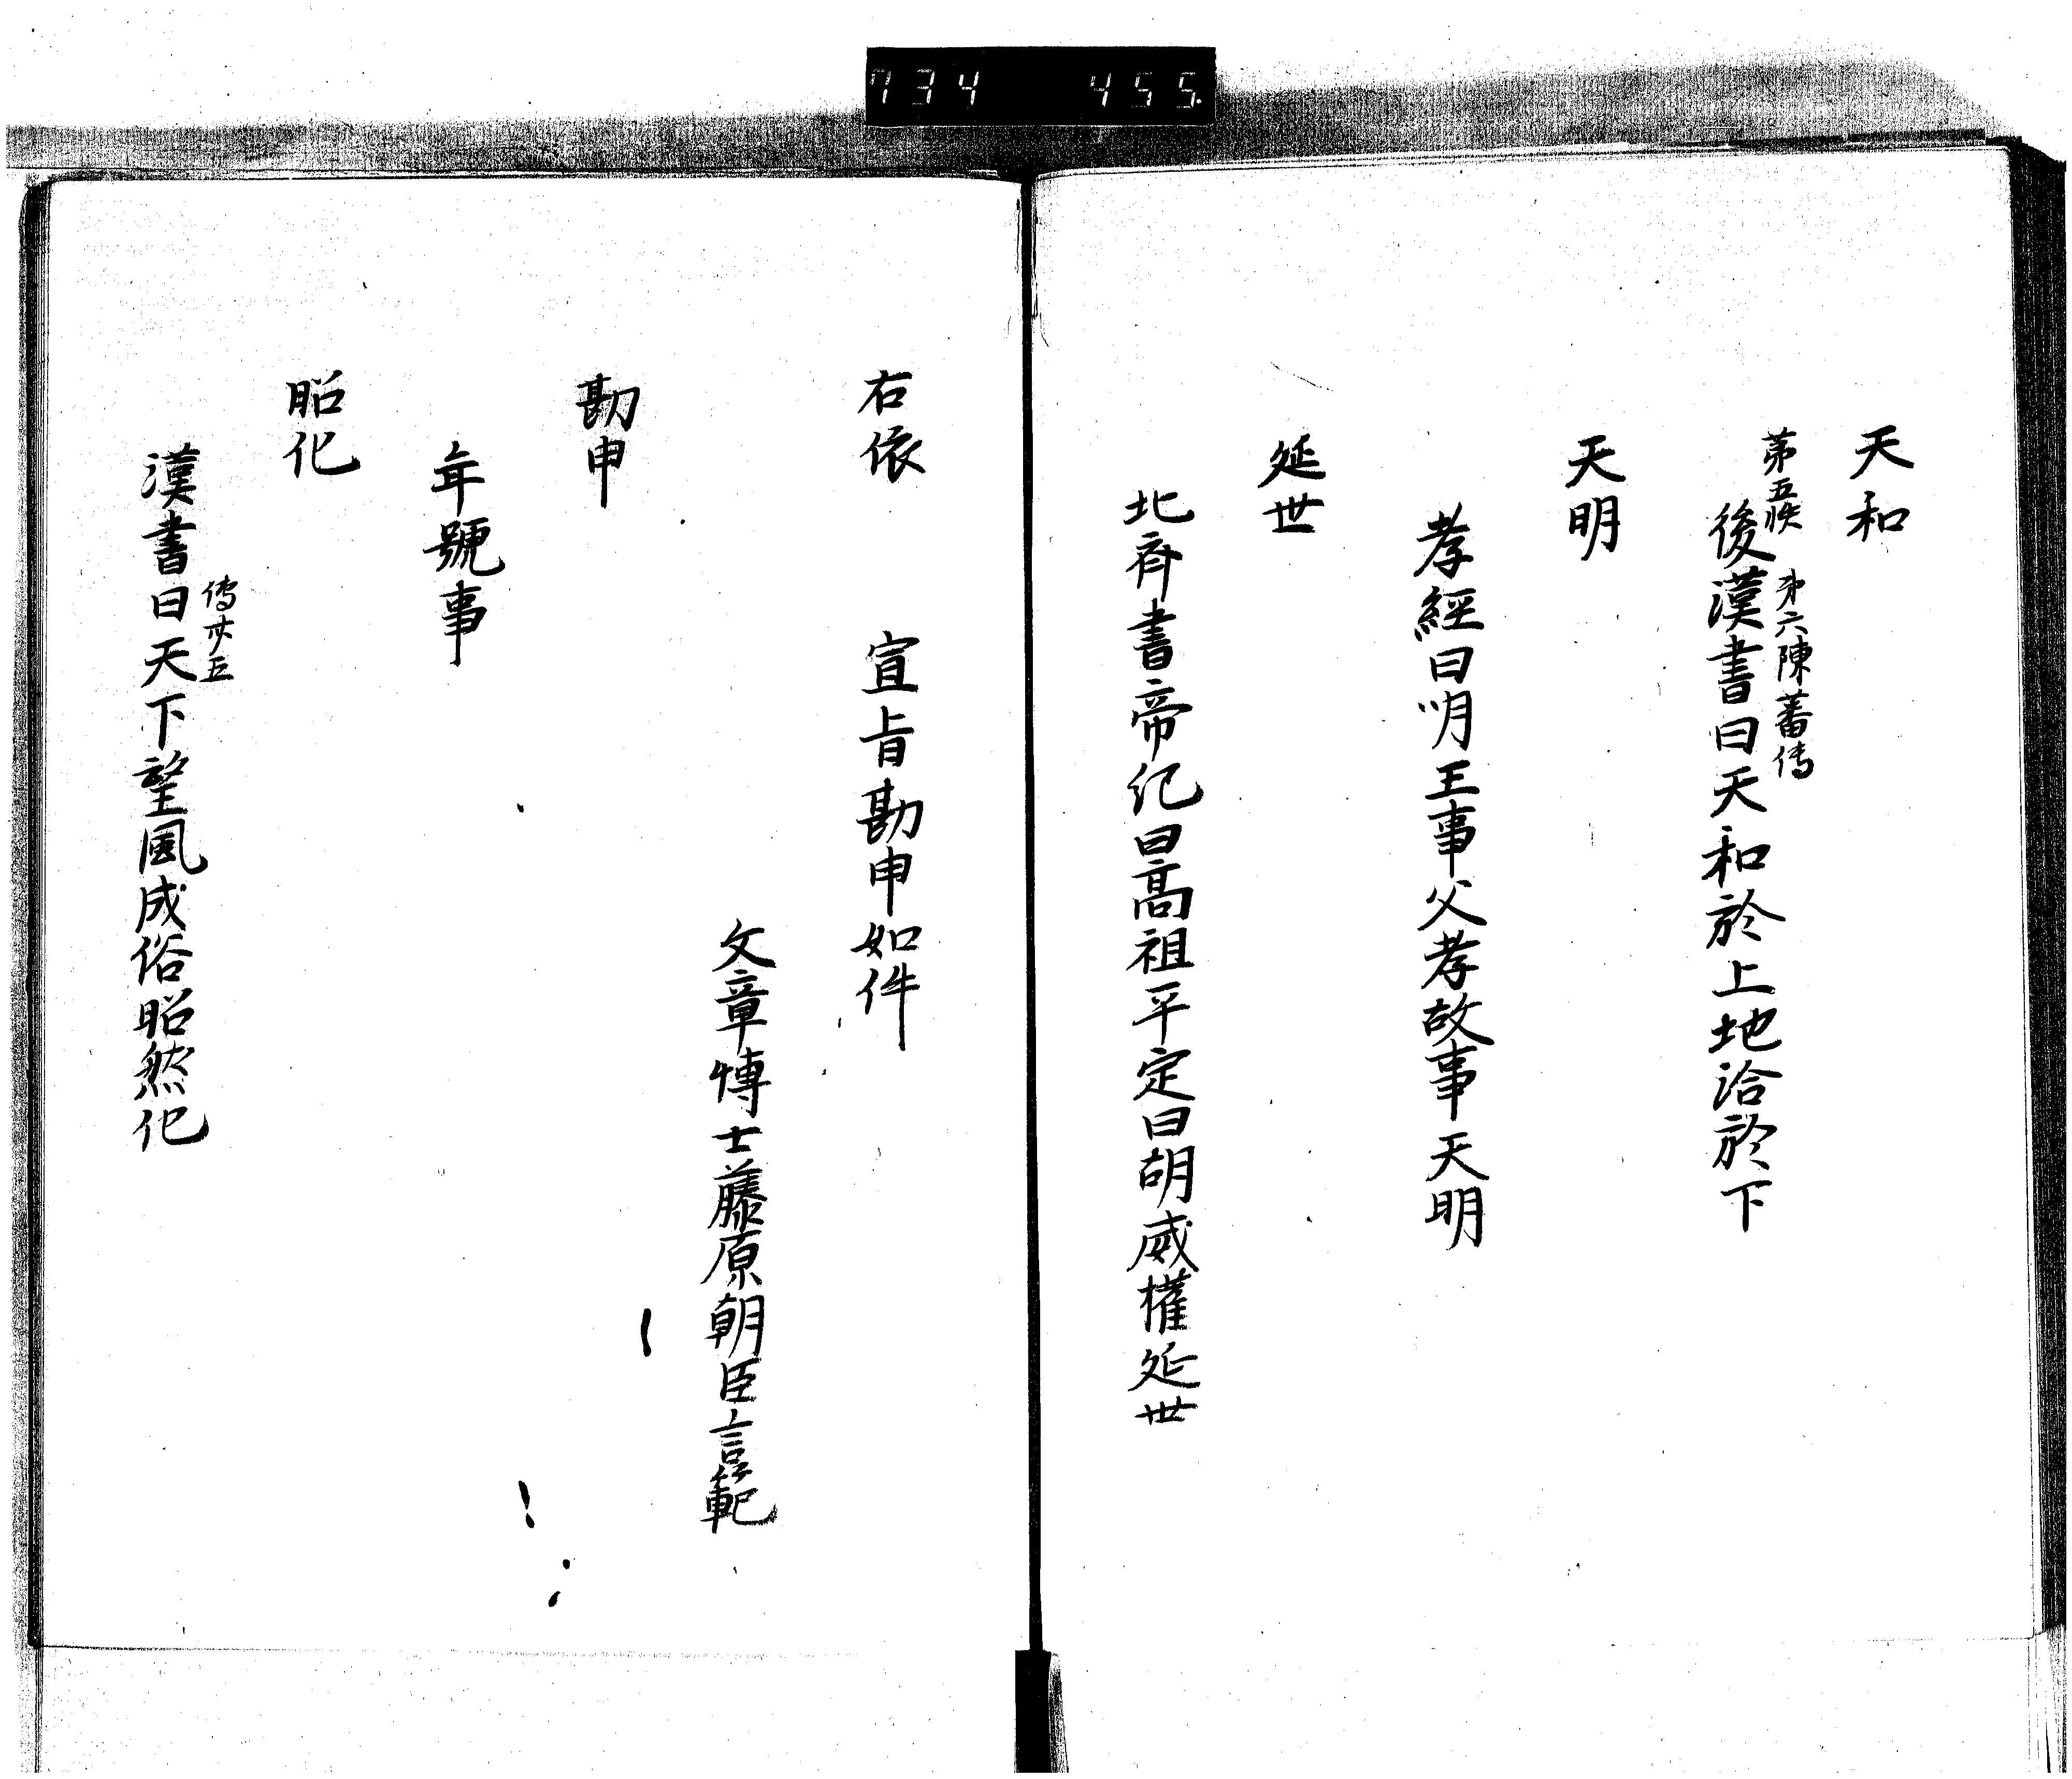 734 455
天和
第五帙 才六陳蕃伝
後漢書曰天和於上地洽於下
天明
孝經曰明王事父孝故事天明
延世
北齊書帝紀曰高祖平定曰胡威權延世
右依 宣旨勘申如件
文章博士藤原朝臣言範
勘申
年號事
昭化
傳廿五
漢書曰天下望風成俗昭然化